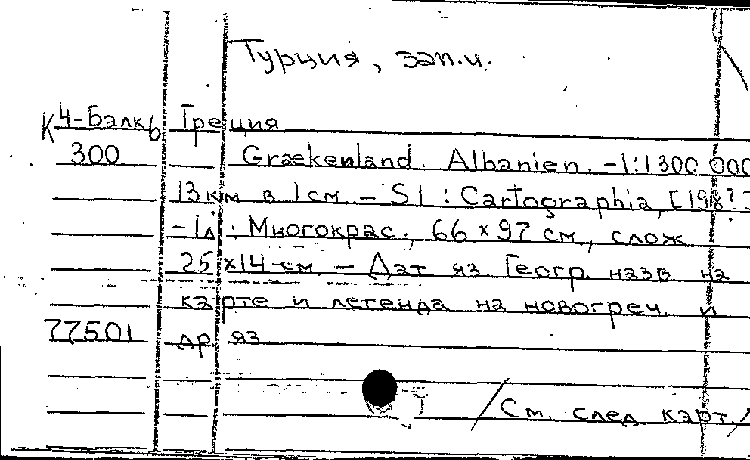 Турция, зап.ч.
К 4-Балк
6 Греция
300 Grækenland. Albanien. -1:1300 000
13 км в 1 см. - S l : Cartographia, [198?]
-1л: Многокрас.; 66 x 97 см, слож
25 x 14 см. - Дат яз Геогр. назв на
карте и легенда на новогреч. и
77501 др яз
/См. след карт./